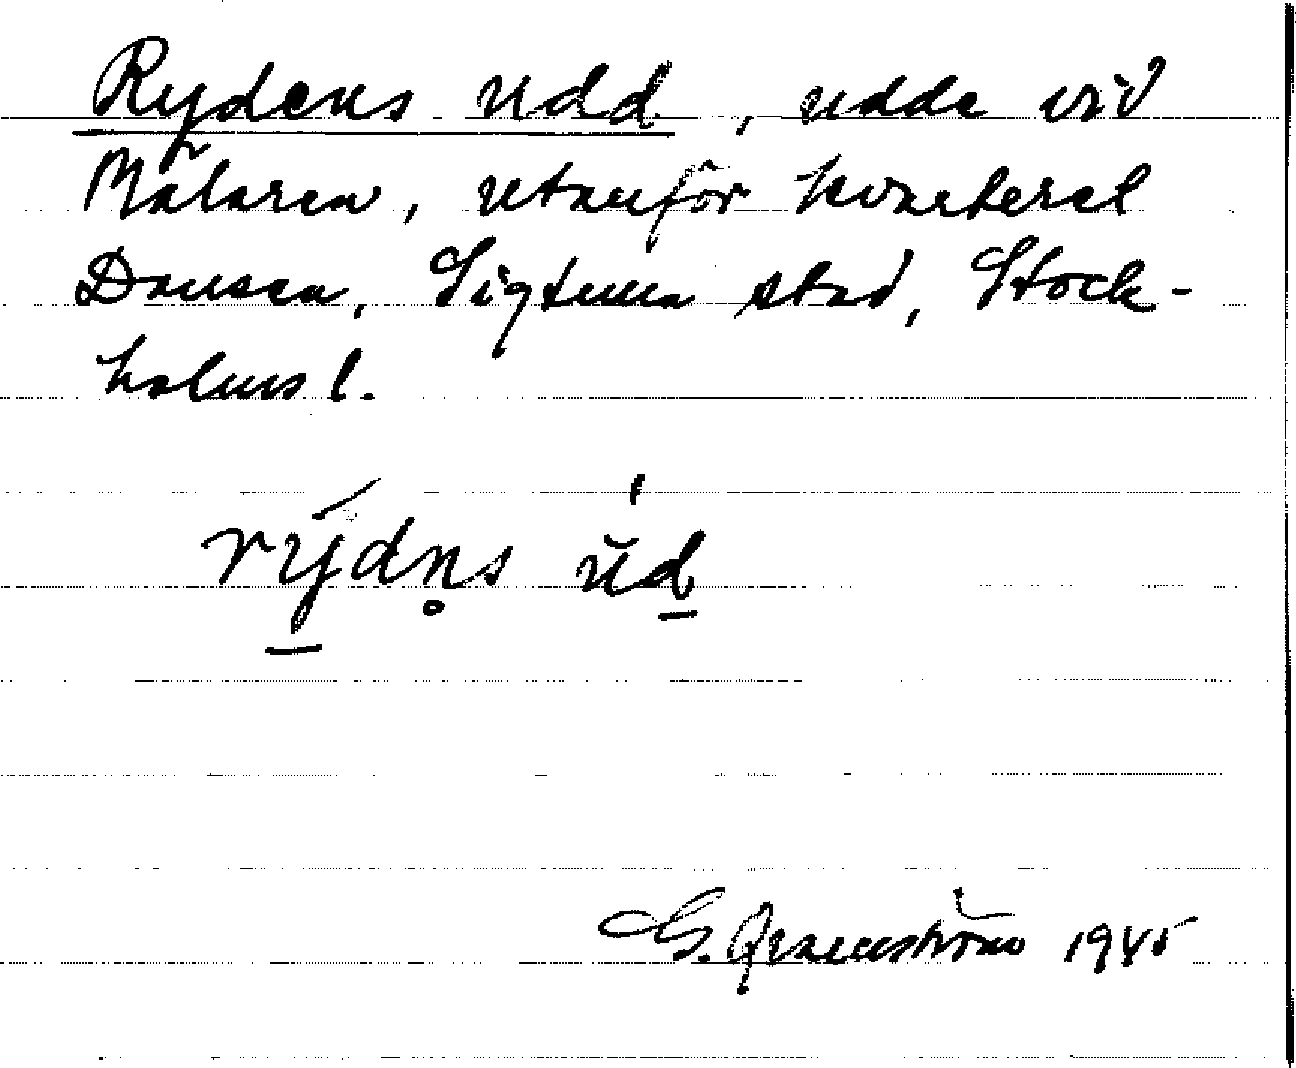 Rydens udd, udde vid
Mälaren, utanför kvarteret
Dansen, Sigtuna stad, Stock-
holms l.
rýdn̥s ŭd
G. 1945